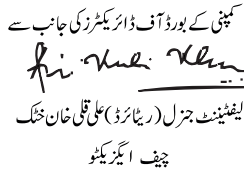 کمپنی کے بورڈ آف ڈائریکٹرز کی جانب سے
لیفٹیننٹ جنرل (ریٹائرڈ) علی قلی خان خٹک
چیف ایگزیکٹو